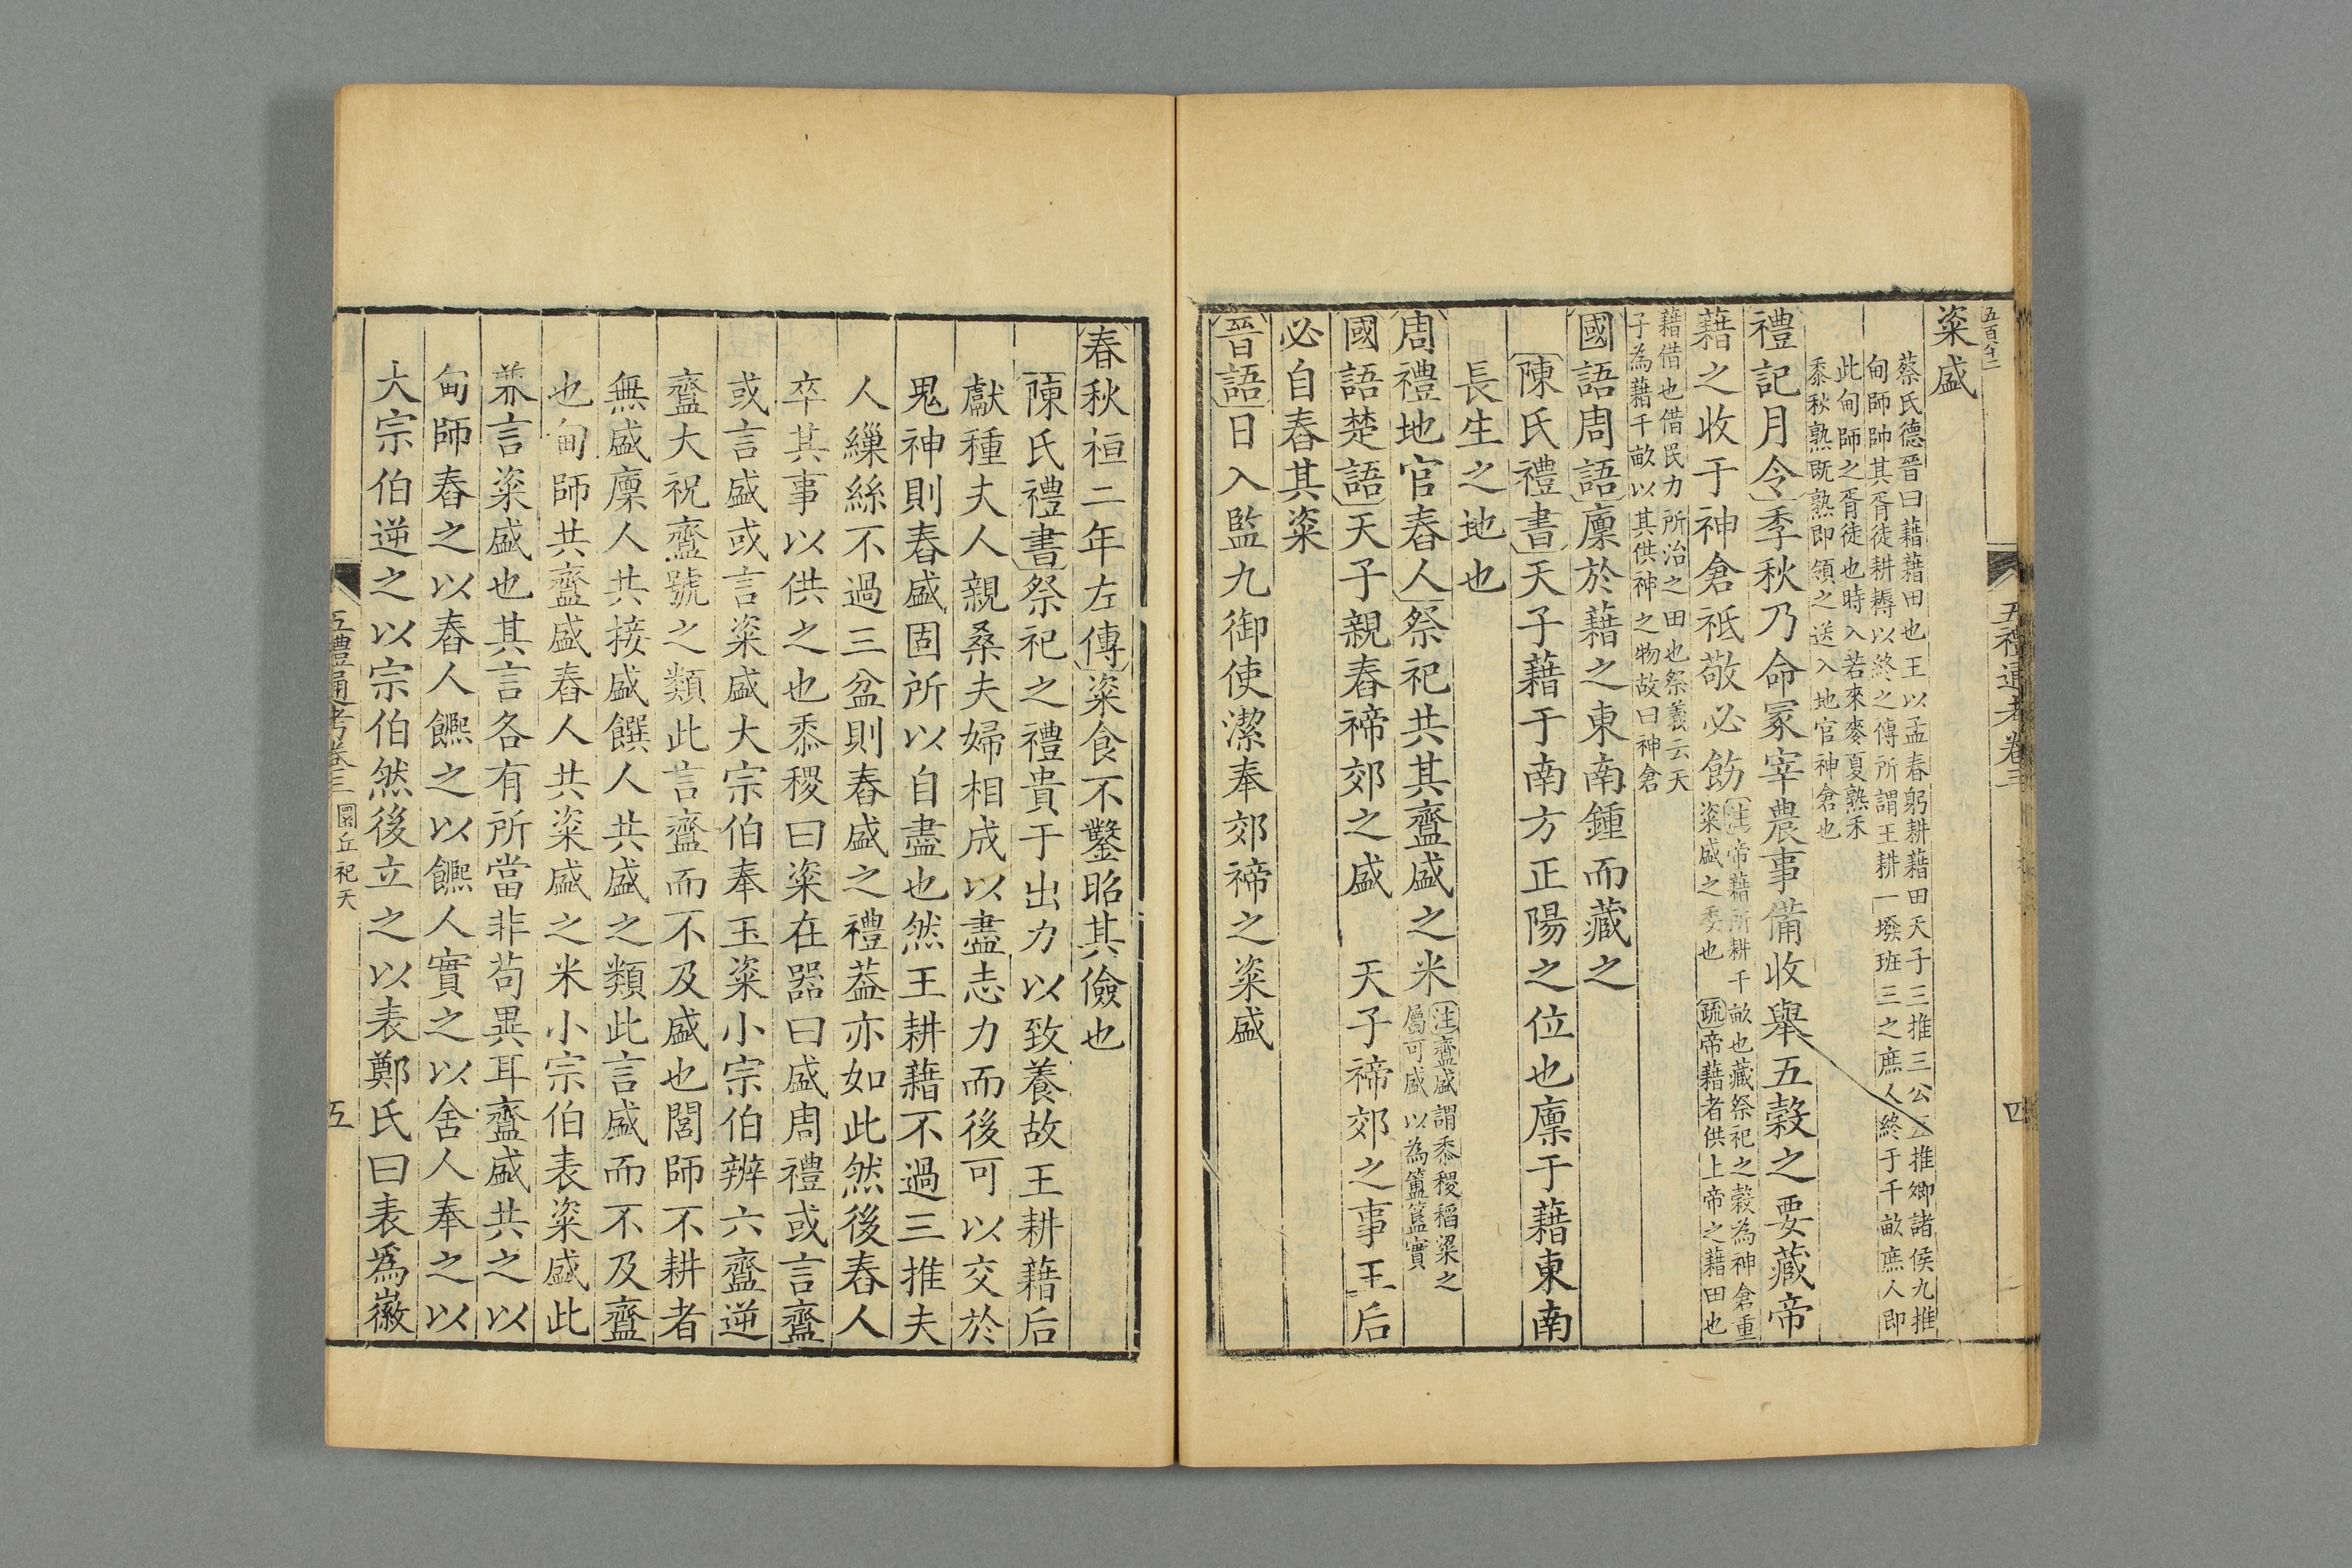 五禮通考卷三
四
粢盛
蔡氏德晉曰藉藉田也王以孟春躬耕藉田天子三推三公五推卿諸侯九推
甸師帥其胥徒耕耨以終之傳所謂王耕一墢班三之庶人終于千畝庶人即
此甸師之胥徒也時入若來麥夏熟禾
黍秋熟既熟即領之送入地官神倉也
禮記月令季秋乃命冢宰農事備收舉五穀之要藏帝
藉之收于神倉祗敬必飭
注帝藉所耕千畝也藏祭祀之穀為神倉重
粢盛之委也 疏帝藉者供上帝之藉田也
藉借也借民力所治之田也祭義云天
子為藉千畝以其供神之物故曰神倉
國語周語廪於藉之東南鍾而藏之
陳氏禮書天子藉于南方正陽之位也廪于藉東南
長生之地也
周禮地官舂人祭祀共其齍盛之米
注齍盛謂黍稷稻粱之
屬可盛以為簠簋實
國語楚語天子親舂禘郊之盛 天子禘郊之事王后
必自舂其粢
晉語日入監九御使潔奉郊禘之粢盛
春秋桓二年左傳粢食不鑿昭其儉也
陳氏禮書祭祀之禮貴于出力以致養故王耕藉后
獻種夫人親桑夫婦相成以盡志力而後可以交於
鬼神則舂盛固所以自盡也然王耕藉不過三推夫
人繅絲不過三盆則舂盛之禮葢亦如此然後舂人
卒其事以供之也黍稷曰粢在器曰盛周禮或言齍
或言盛或言粢盛大宗伯奉玉粢小宗伯辨六齍逆
齍大祝齍號之類此言齍而不及盛也閭師不耕者
無盛廪人共接盛饌人共盛之類此言盛而不及齍
也甸師共齍盛舂人共粢盛之米小宗伯表粢盛此
兼言粢盛也其言各有所當非苟異耳齍盛共之以
甸師舂之以舂人饎之以饎人實之以舍人奉之以
大宗伯逆之以宗伯然後立之以表鄭氏曰表爲徽
五禮通考卷三 圜丘祀天
五